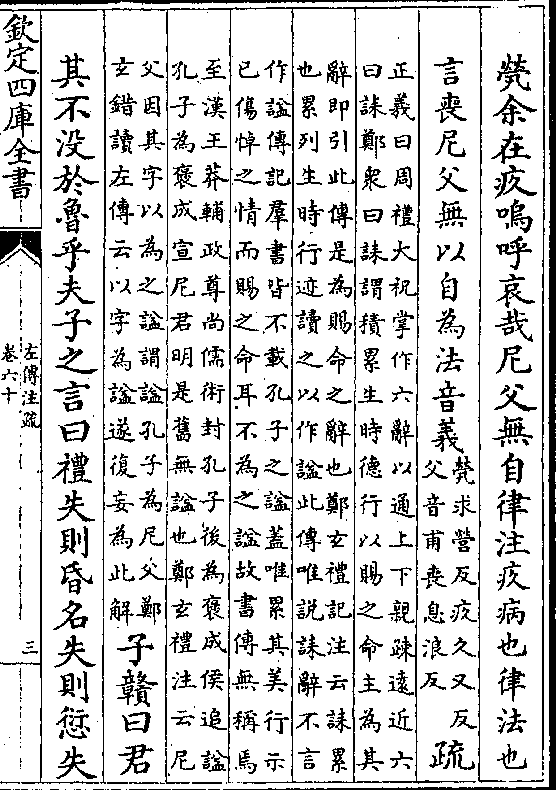 煢余在疚嗚呼哀哉尼父無自律注疚病也律法也
言喪尼父無以自為法音義煢求營反疚久又反
父音甫喪息浪反疏
正義曰周禮大祝掌作六辭以通上下親疎遠近六
曰誄鄭衆曰誄謂積累生時德行以賜之命主為其
辭即引此傳是為賜命之辭也鄭玄禮記注云誄累
也累列生時行迹讀之以作諡此傳唯說誄辭不言
作諡傳記羣書皆不載孔子之諡蓋唯累其美行示
已傷悼之情而賜之命耳不為之諡故書傳無稱焉
至漢王莽輔政尊尚儒術封孔子後為褒成侯追諡
孔子為褒成宣尼君明是舊無諡也鄭玄禮注云尼
父因其字以為之諡謂諡孔子為尼父鄭
玄錯讀左傳云以字為諡遂復妄為此解
子贛曰君
其不没於魯乎夫子之言曰禮失則昏名失則愆失
欽定四庫全書
左傳注疏
卷六十
三